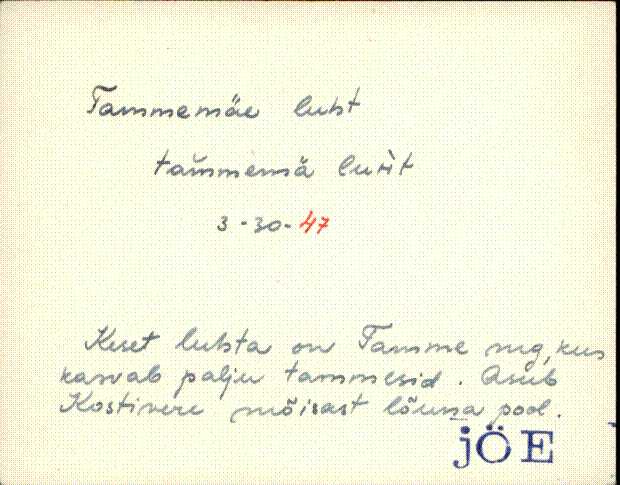 Tammemäe luht
tam̆memä luh̀t
3-30-47
Keset luhta on Tamme mg, kus
kasvab palju tammesid. Asub
Kostivere mõisast lõuna pool.
JÖE